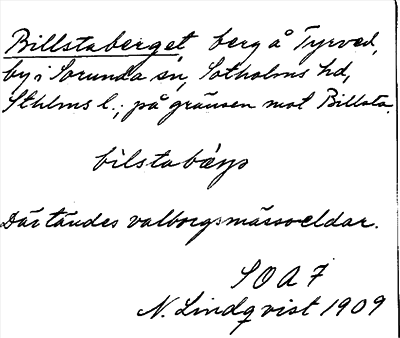 Billstaberget, berg å Tyrved,
by i Sorunda sn, Sotholms hd,
Sthlms l.; på gränsen mot Billsta.
bìlstabær̀jə
Där tändes valborgsmässoeldar.
SOA 7
N. Lindqvist 1909